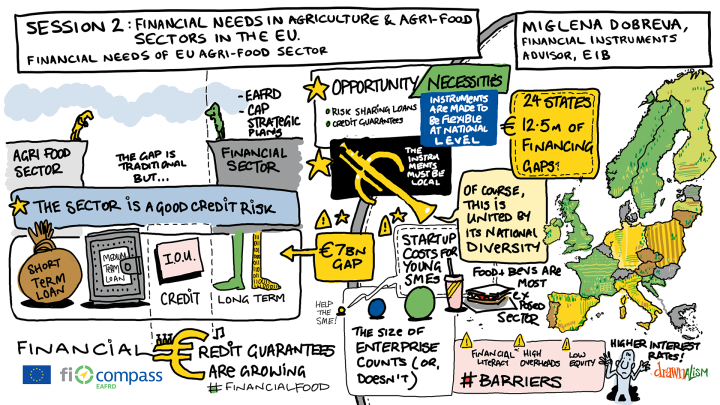 SESSION 2: FINANCIAL NEEDS IN AGRICULTURE & AGRI-FOOD
SECTORS IN THE EU.
FINANCIAL NEEDS OF EU AGRI-FOOD SECTOR
MIGLENA DOBREVA,
FINANCIAL INSTRUMENTS
ADVISOR, EIB
- EAFRD
- CAP
STRATEGIC
PLANS
AGRI FOOD
SECTOR
THE GAP IS
TRADITIONAL
BUT...
FINANCIAL
SECTOR
OPPORTUNITY
RISK SHARING LOANS
CREDIT GUARANTEES
NECESSITIES
INSTRUMENTS
ARE MADE TO
BE FLEXIBLE
AT NATIONAL
LEVEL
€
24 STATES
12.5M OF
FINANCING
GAPS!
THE
INSTRU
MENTS
MUST BE
LOCAL
THE SECTOR IS A GOOD CREDIT RISK
SHORT
TERM
LOAN
MEDIUM
TERM
LOAN
I.O.U.
CREDIT
LONG TERM
€7BN
GAP
OF COURSE,
THIS IS
UNITED BY
ITS NATIONAL
DIVERSITY
STARTUP
COSTS FOR
YOUNG
SMES
FOOD + BEVS ARE
MOST
EX
POSED
SECTOR
HELP
THE
SME!
THE SIZE OF
ENTERPRISE
COUNTS (OR,
DOESN'T)
FINANCIAL
LITERACY
HIGH
OVERHEADS
LOW
EQUITY
#BARRIERS
HIGHER INTEREST
RATES!
FINANCIAL €REDIT GUARANTEES
ARE GROWING
#FINANCIALFOOD
fi compass
EAFRD
drawnalism